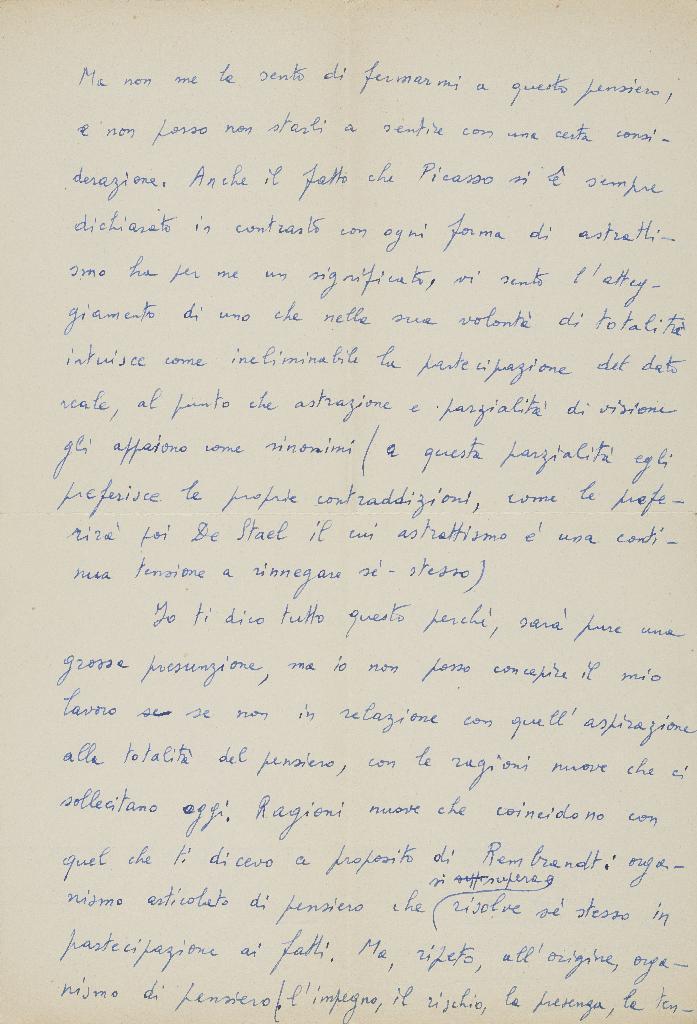 Ma non me la sento di fermarmi a questo pensiero,
e non posso non starli a sentire con una certa consi-
derazione. Anche il fatto che Picasso si è sempre
dichiarato in contrasto con ogni forma di astratti-
smo ha per me un significato, vi sento l'atteg-
giamento di uno che nella sua volontà di totalità
intuisce come ineliminabile la partecipazione del dato
reale, al punto che astrazione e parzialità di visione
gli appaiono come sinonimi (a questa parzialità egli
preferisce le proprie contraddizioni, come le prefe-
rirà poi De Stael il cui astrattismo é una conti-
nua tensione a rinnegare sé-stesso)
Io ti dico tutto questo perché, sarà pure una
grossa presunzione, ma io non posso concepire il mio
lavoro se se non in relazione con quell'aspirazione
alla totalità del pensiero, con le ragioni nuove che ci
sollecitano oggi. Ragioni nuove che coincidono con
quel che ti dicevo a proposito di Rembrandt: orga-
si supera
nismo articolato di pensiero che (risolve sé stesso in
partecipazione ai fatti. Ma, ripeto, all'origine, orga-
nismo di pensiero (l'impegno, il rischio, la presenza, la ten-